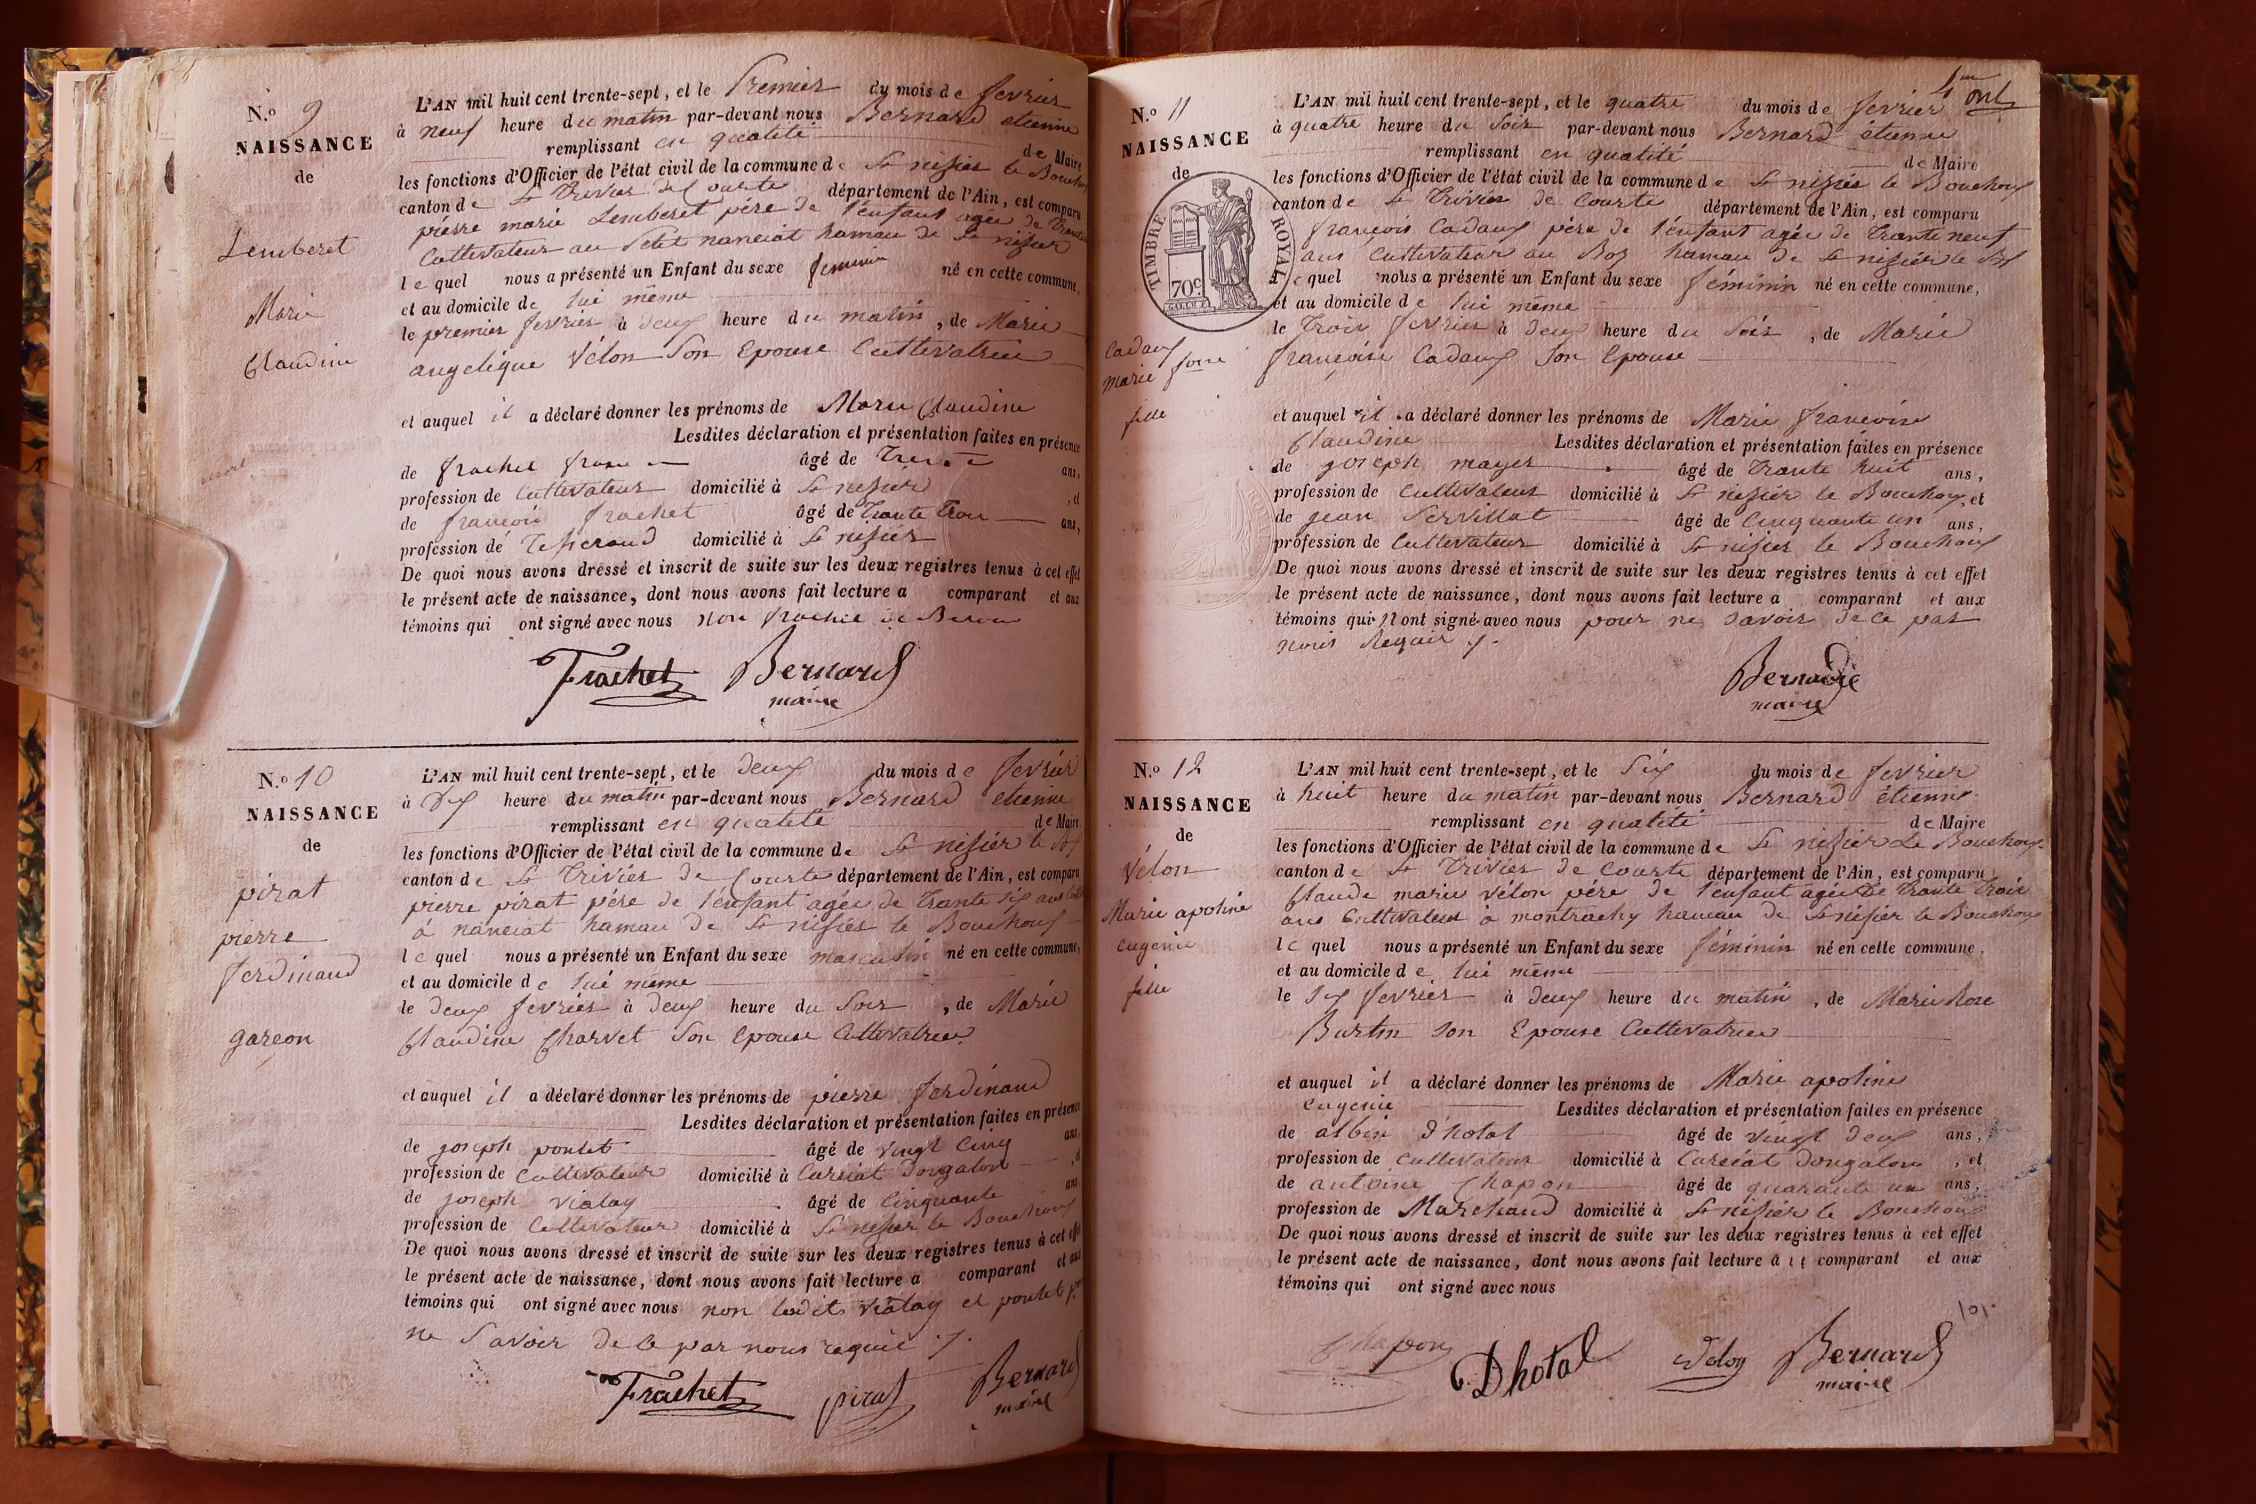 N.º 9
NAISSANCE
de
Lemberet
Marie
Claudine
L'AN mil huit cent trente-sept, et le Premier du mois de fevrier
à neuf heure du matin par-devant nous Bernard etienne
remplissant en qualité de Maire
les fonctions d'Officier de l'état civil de la commune de St nizier le Bouchoux
canton de St Trivier de Courte département de l'Ain, est comparu
pierre marie Lemberet père de l'enfant agée de Trante
Cultivateur au Petit nanciat hamau de St nizier
lequel nous a présenté un Enfant du sexe féminin né en cette commune,
et au domicile de lui même
le premier fevrier à deux heure du matin, de Marie
angelique Vélon Son Epouse Cultivatrice
et auquel il a déclaré donner les prénoms de Marie Claudine
Lesdites déclaration et présentation faites en présence
de frachet âgé de Trente ans,
profession de Cultivateur domicilié à St nizier, et
de françois frachet âgé de Trante Trois ans,
profession de Tisserand domicilié à St nizier
De quoi nous avons dressé et inscrit de suite sur les deux registres tenus à cet effet
le présent acte de naissance, dont nous avons fait lecture a comparant et aux
témoins qui ont signé avec nous non frachet
Frachet Bernard
maire
N.º 10
NAISSANCE
de
pirat
pierre
ferdinand
garcon
L'AN mil huit cent trente-sept, et le deux du mois de fevrier
à Six heure du matin par-devant nous Bernard etienne
remplissant en qualité de Maire
les fonctions d'Officier de l'état civil de la commune de St nizier le
canton de St Trivier de Courte département de l'Ain, est comparu
pierre pirat père de l'enfant agée de Trante Six ans
à nanciat hamau de St nizier le Bouchoux
lequel nous a présenté un Enfant du sexe masculin né en cette commune,
et au domicile de lui même
le deux fevrier à deux heure du Soir, de Marie
Claudine Charvet Son Epouse Cultivatrice
et auquel il a déclaré donner les prénoms de pierre ferdinand
Lesdites déclaration et présentation faites en présence
de joseph poulet âgé de vingt Cinq ans,
profession de Cultivateur domicilié à Curciat Dongalon, et
de joseph vialay âgé de Cinquante ans
profession de Cultivateur domicilié à St nizier le Bouchoux
De quoi nous avons dressé et inscrit de suite sur les deux registres tenus à cet effet
le présent acte de naissance, dont nous avons fait lecture a comparant et aux
témoins qui ont signé avec nous non lesdits vialay et poulet pour
ne Savoir de ce par nous requis ./.
Frachet pirat Bernard
maire
4me
N.º 11
NAISSANCE
de
TIMBRE ROYAL
70c
Cadaux
marie foise
fille
L'AN mil huit cent trente-sept, et le quatre du mois de fevrier
à quatre heure du Soir par-devant nous Bernard etienne
remplissant en qualité de Maire
les fonctions d'Officier de l'état civil de la commune de St nizier le Bouchoux
canton de St Trivier de Courte département de l'Ain, est comparu
françois Cadaux père de l'enfant agée de Trante neuf
ans Cultivateur au Boz hamau de St nizier le
lequel nous a présenté un Enfant du sexe féminin né en cette commune,
et au domicile de lui même
le Trois fevrier à deux heure du Soir, de Marie
françoise Cadaux Son Epouse
et auquel il a déclaré donner les prénoms de Marie françoise
Claudine Lesdites déclaration et présentation faites en présence
de joseph mayer âgé de Trante huit ans,
profession de Cultivateur domicilié à St nizier le Bouchoux, et
de jean Servillat âgé de Cinquante un ans,
profession de Cultivateur domicilié à St nizier le Bouchoux
De quoi nous avons dressé et inscrit de suite sur les deux registres tenus à cet effet
le présent acte de naissance, dont nous avons fait lecture a comparant et aux
témoins qui n ont signé avec nous pour ne Savoir de ce par
nous Requis ./.
Bernard
maire
N.º 12
NAISSANCE
de
Vélon
Marie apoline
eugenie
fille
L'AN mil huit cent trente-sept, et le Six du mois de fevrier
à huit heure du matin par-devant nous Bernard étienne
remplissant en qualité de Maire
les fonctions d'Officier de l'état civil de la commune de St nizier Le Bouchoux
canton de St Trivier de Courte département de l'Ain, est comparu
Claude marie vélon père de l'enfant agée de Trante Trois
ans Cultivateur à montrachy hamau de St nizier le Bouchoux
lequel nous a présenté un Enfant du sexe féminin né en cette commune,
et au domicile de lui même
le Six fevrier à deux heure du matin, de Marie Rose
Burtin Son Epouse Cultivatrice
et auquel il a déclaré donner les prénoms de Marie apoline
Eugenie Lesdites déclaration et présentation faites en présence
de albin D'hotal âgé de vingt deux ans,
profession de Cultivateur domicilié à Curciat Dongalon, et
de antoine Chapon âgé de quarante un ans,
profession de Marchand domicilié à St nizier le Bouchoux
De quoi nous avons dressé et inscrit de suite sur les deux registres tenus à cet effet
le présent acte de naissance, dont nous avons fait lecture a comparant et aux
témoins qui ont signé avec nous
Chapon Dhotal Velon Bernard
maire